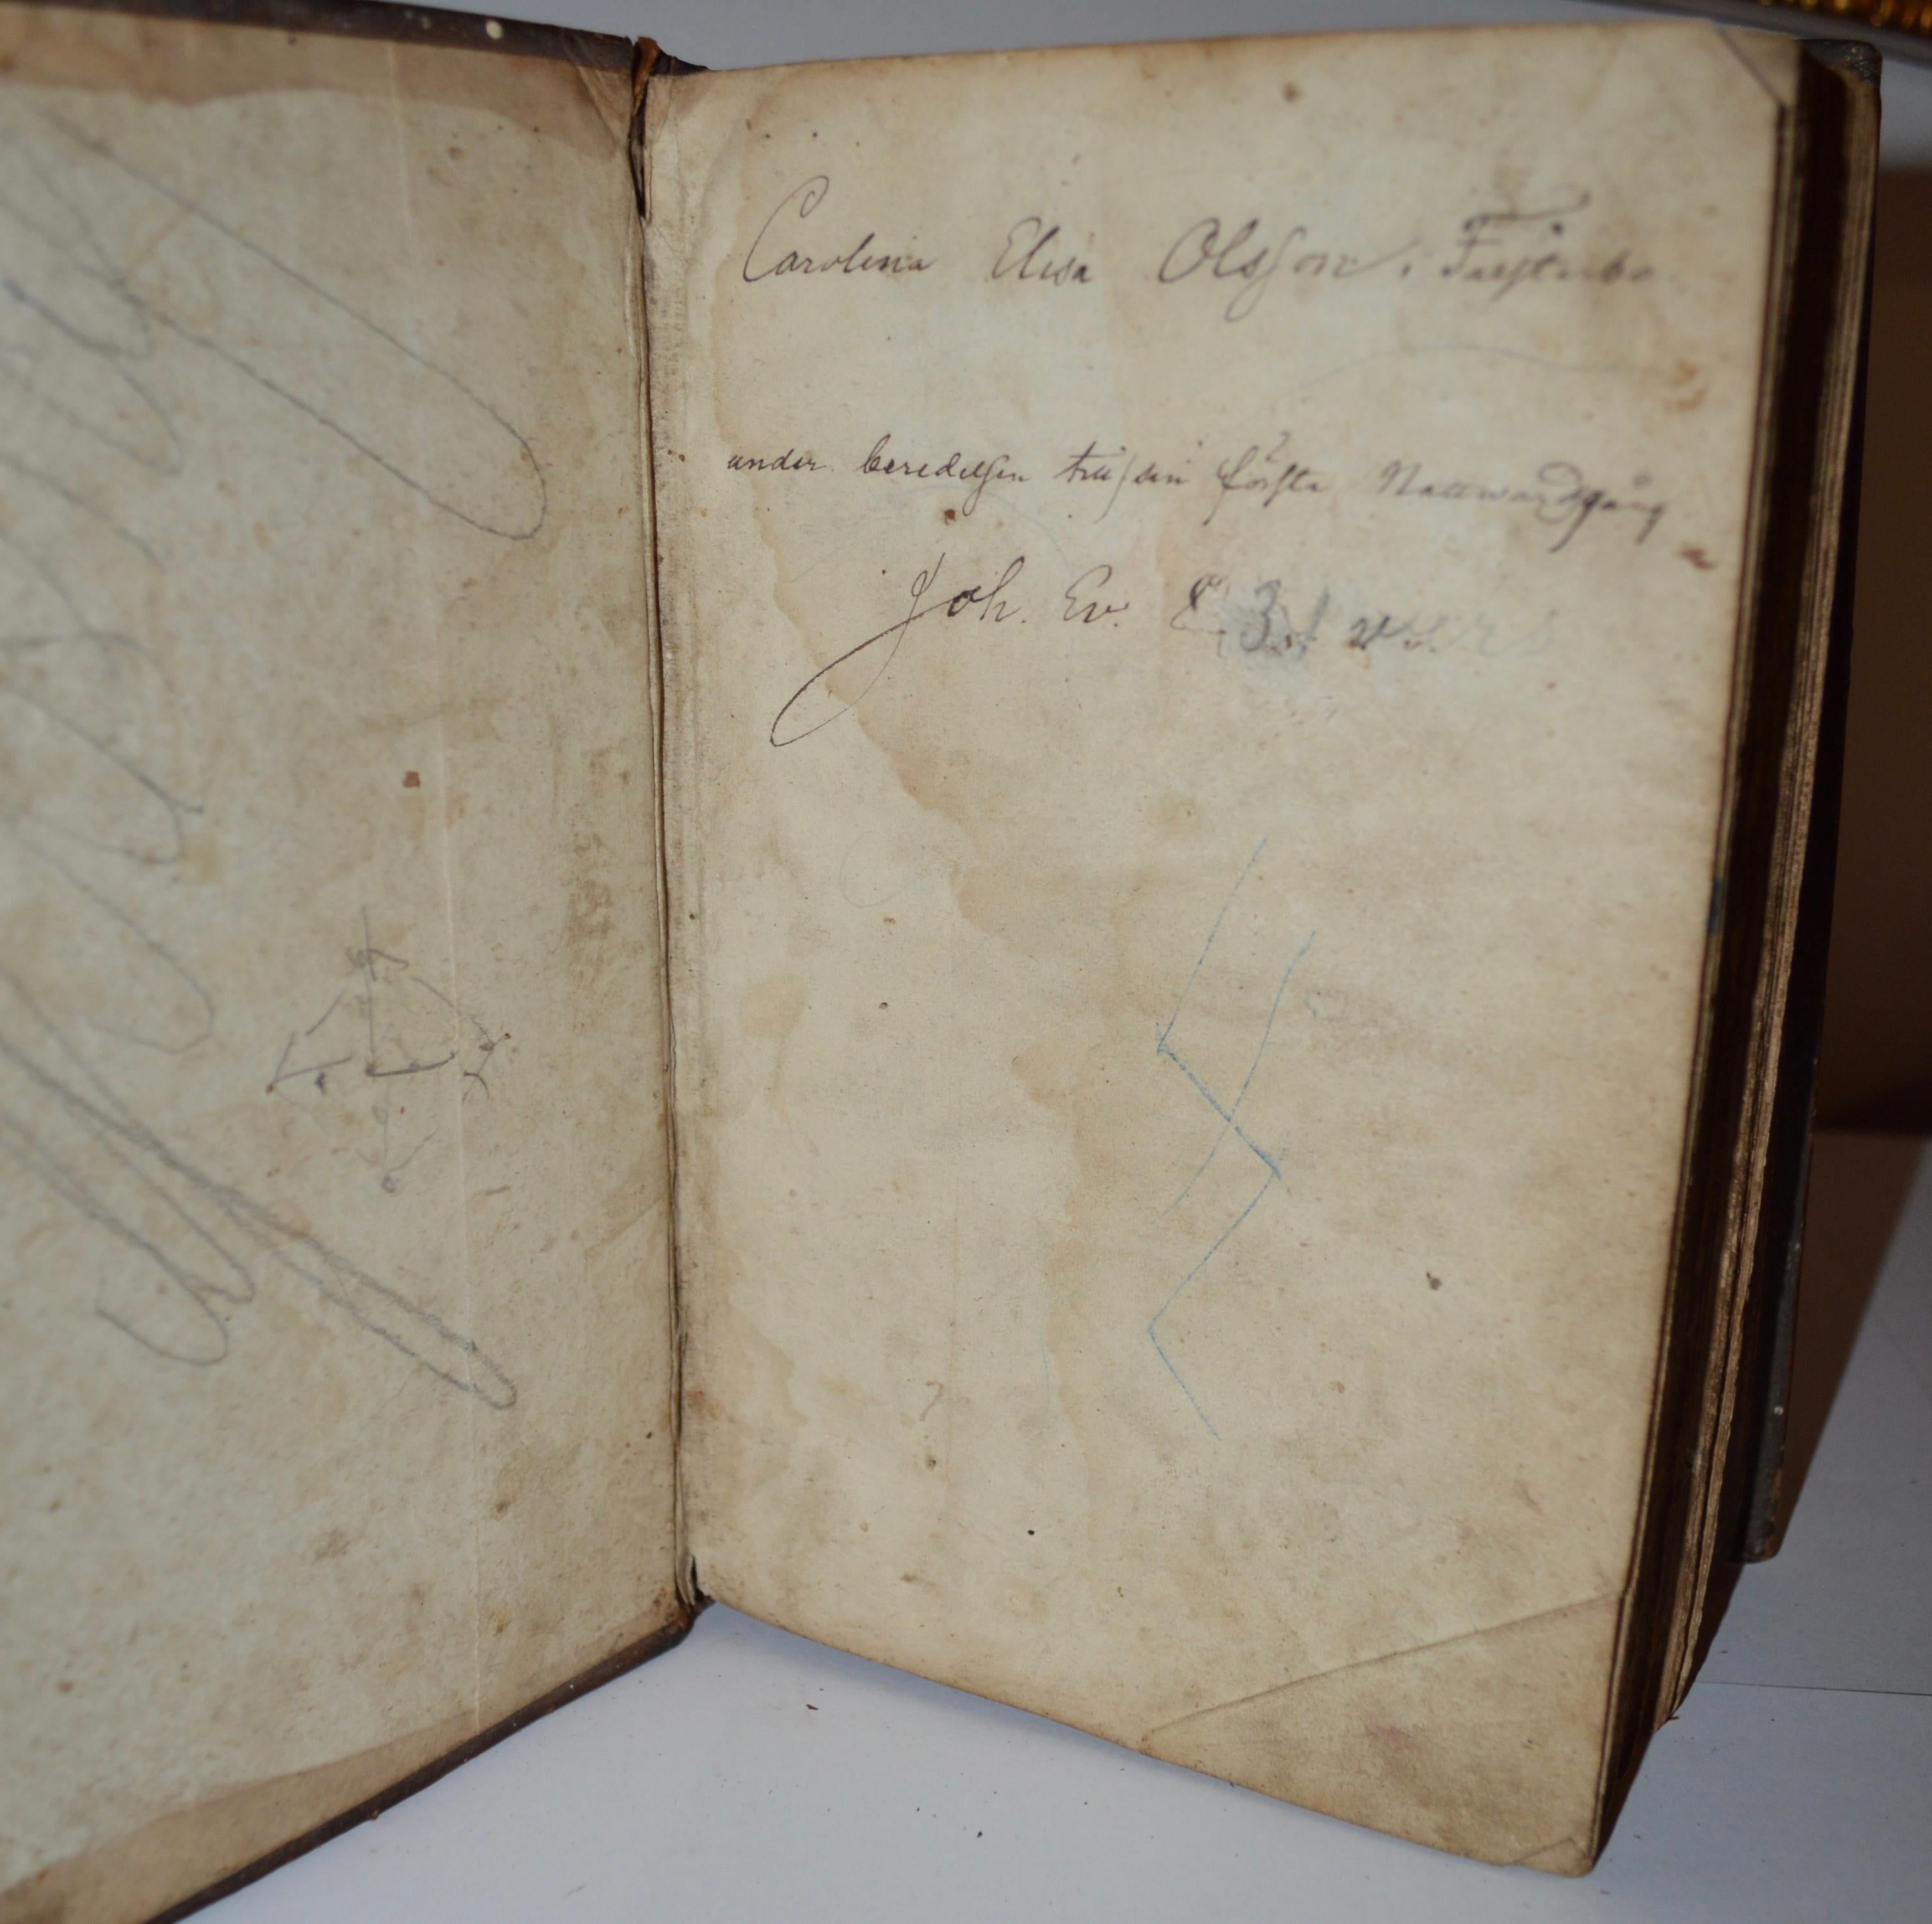 Carolina Elisa Olsson, i
under beredelsen till sin första Nattwardsgång
Joh. Ev. 8 31 v.